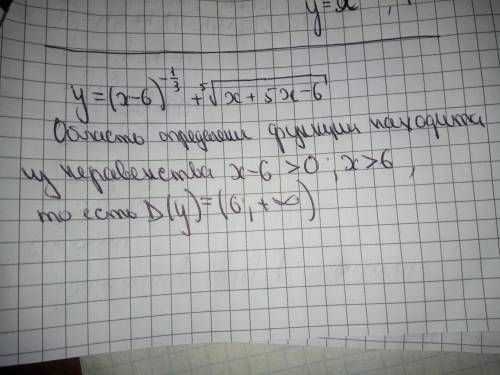 y = x
y = (x-6)^{-1/3} + ⁵√(x + 5x - 6)
Область определени функции находится
из неравенства x-6 > 0 ; x > 6 ,
то есть D(y) = (6 , +∞)